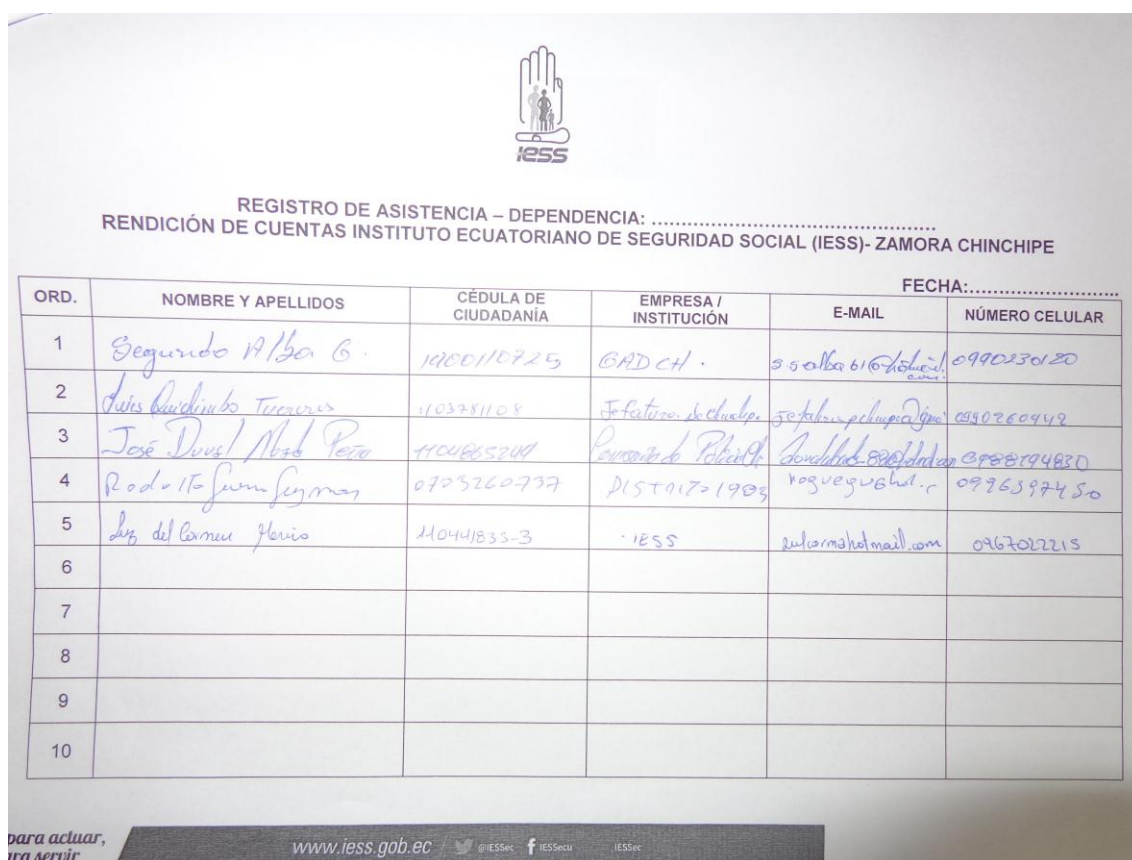 iess
REGISTRO DE ASISTENCIA – DEPENDENCIA: ....................................................
RENDICIÓN DE CUENTAS INSTITUTO ECUATORIANO DE SEGURIDAD SOCIAL (IESS)- ZAMORA CHINCHIPE
FECHA:............................
ORD. NOMBRE Y APELLIDOS CÉDULA DE CIUDADANÍA EMPRESA / INSTITUCIÓN E-MAIL NÚMERO CELULAR
1 Segundo Alba G. 1900110725 GADCH. 0990230120
2 Luis Quichimbo 1103781108 Jefatura 0990260442
3 José Peña 1104865249 0988194830
4 Rodolfo Guzman 0703260737 DISTRITO 0996597450
5 Luz del Carmen 110441835-3 IESS 0967022215
6
7
8
9
10
para actuar,
para servir
www.iess.gob.ec @IESSec IESSecu IESSec